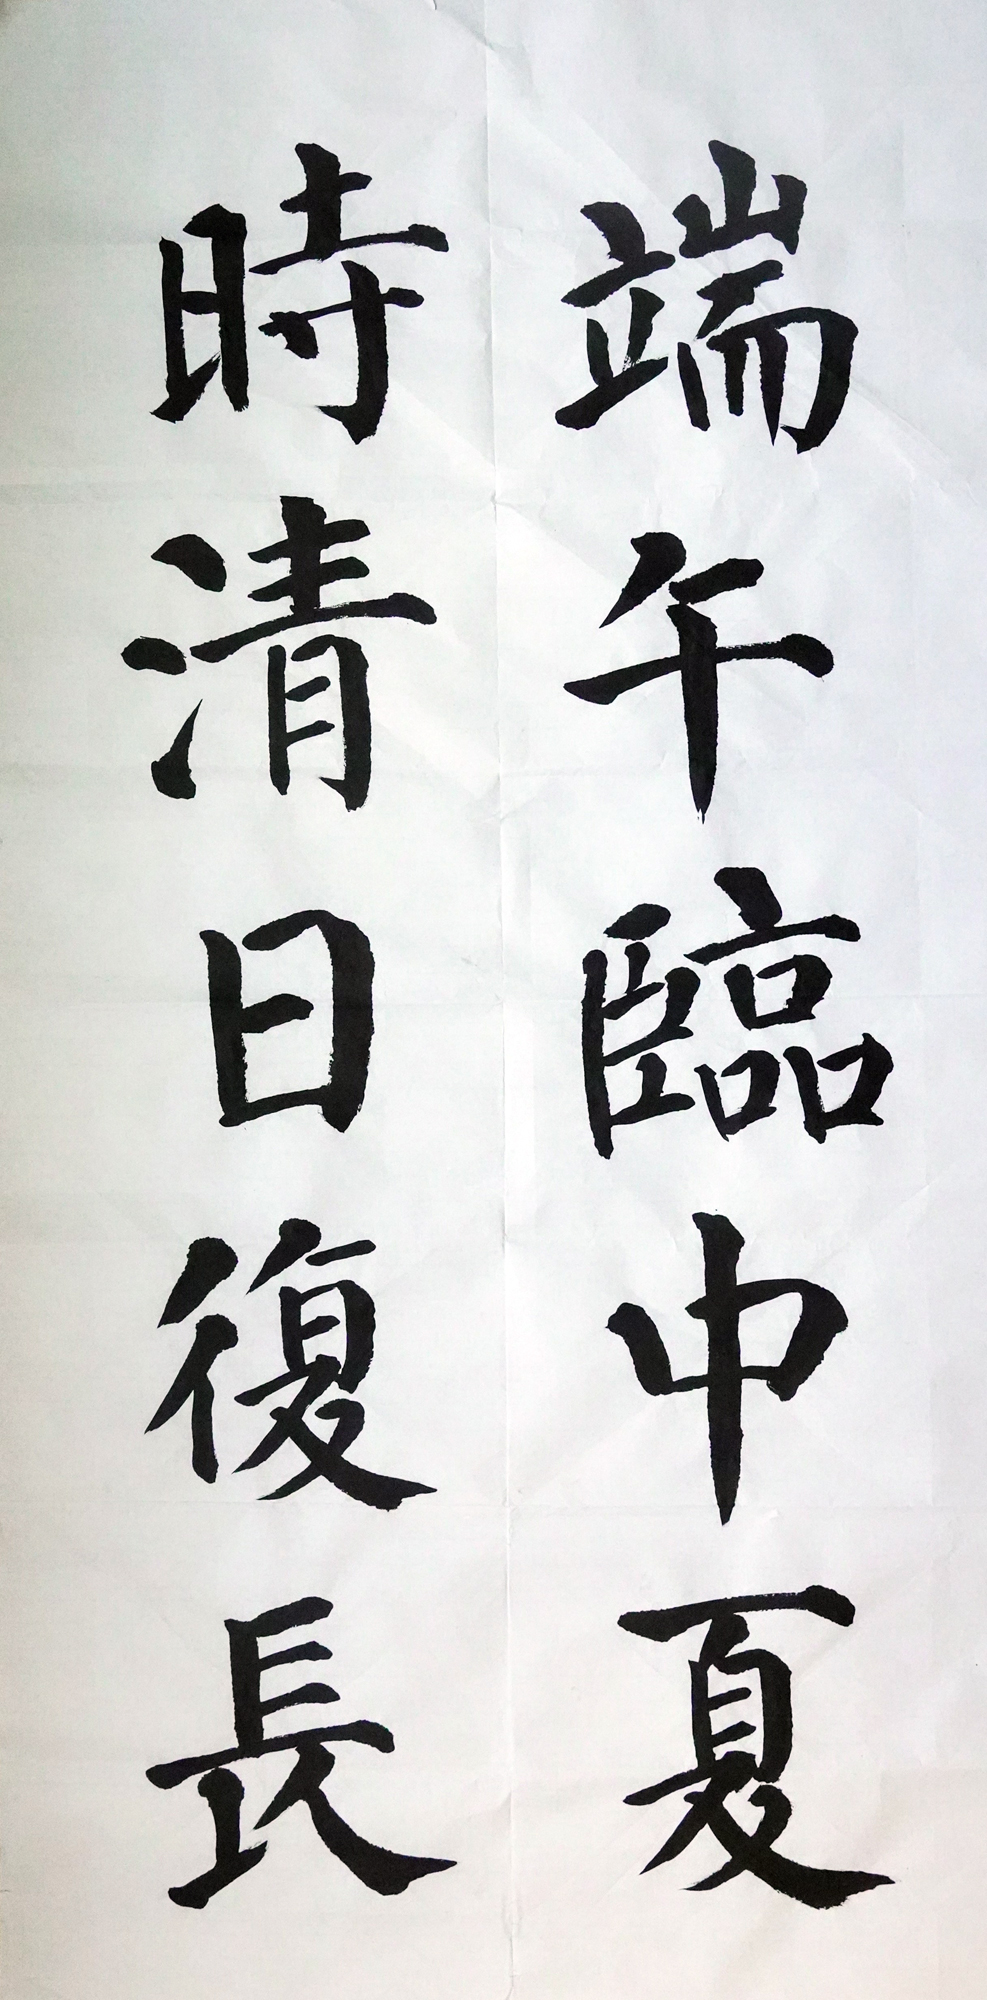 端午臨中夏
時清日復長